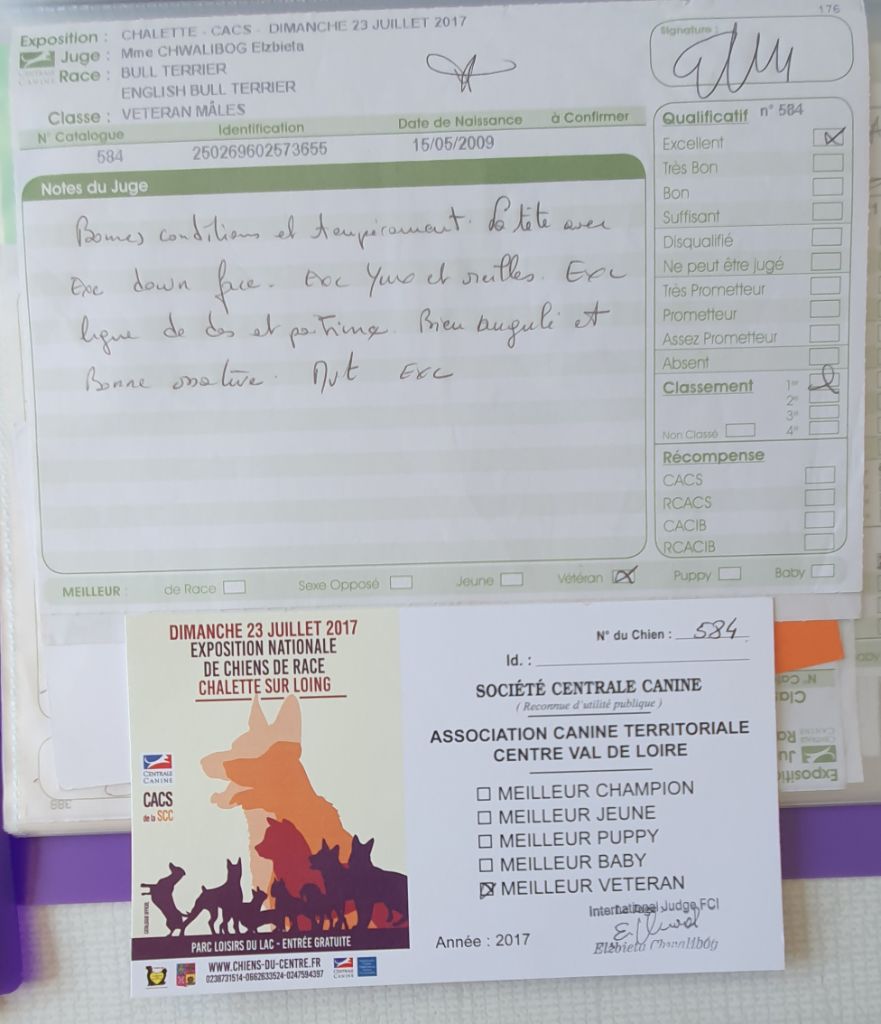 176
Exposition : CHALETTE - CACS - DIMANCHE 23 JUILLET 2017
Juge : Mme CHWALIBOG Elzbieta
CENTRALE CANINE
Race : BULL TERRIER
ENGLISH BULL TERRIER
Classe : VETERAN MÂLES
N° Catalogue Identification Date de Naissance à Confirmer
584 250269602573655 15/05/2009
Signature :
Notes du Juge
Bonnes conditions et tempérament. La tête avec
Exc down face. Exc yeux et oreilles. Exc
ligne de dos et poitrine. Bien angulé et
Bonne ossature. Mvt Exc
Qualificatif n° 584
Excellent
Très Bon
Bon
Suffisant
Disqualifié
Ne peut être jugé
Très Prometteur
Prometteur
Assez Prometteur
Absent
Classement 1er
2e
3e
Non Classé 4e
Récompense
CACS
RCACS
CACIB
RCACIB
MEILLEUR : de Race Sexe Opposé Jeune Vétéran Puppy Baby
DIMANCHE 23 JUILLET 2017
EXPOSITION NATIONALE
DE CHIENS DE RACE
CHALETTE SUR LOING
CENTRALE CANINE
CACS
de la SCC
PARC LOISIRS DU LAC - ENTRÉE GRATUITE
WWW.CHIENS-DU-CENTRE.FR
0238731514-0662633524-0247594397
N° du Chien : 584
Id. :
SOCIÉTÉ CENTRALE CANINE
( Reconnue d'utilité publique )
ASSOCIATION CANINE TERRITORIALE
CENTRE VAL DE LOIRE
MEILLEUR CHAMPION
MEILLEUR JEUNE
MEILLEUR PUPPY
MEILLEUR BABY
MEILLEUR VETERAN
International Judge FCI
Elzbieta Chwalibog
Année : 2017
N° Cat
Clas
Ra
Ju
Expositi